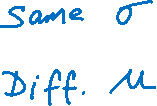 Same σ
Diff. μ